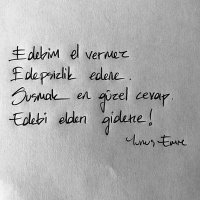 Edebim el vermez
Edepsizlik edene.
Susmak en güzel cevap.
Edebi elden gidene!
Yunus Emre